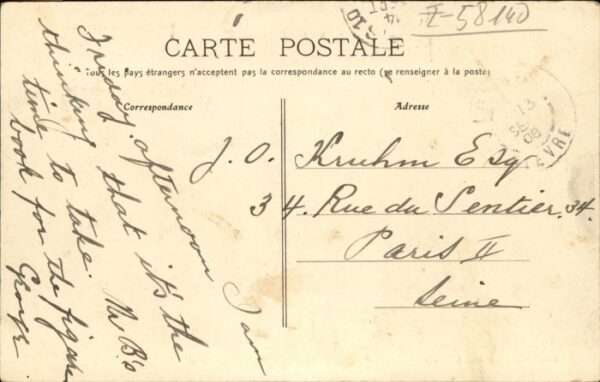 I-58140
CARTE POSTALE
Tous les pays étrangers n'acceptent pas la correspondance au recto (se renseigner à la poste)
Correspondance
Adresse
Friday afternoon I am
thinking that it's the
time to take Mr B's
book for the figure
George
J. O. Kruhm Esq
34. Rue du Sentier. 34.
Paris II
Seine
13